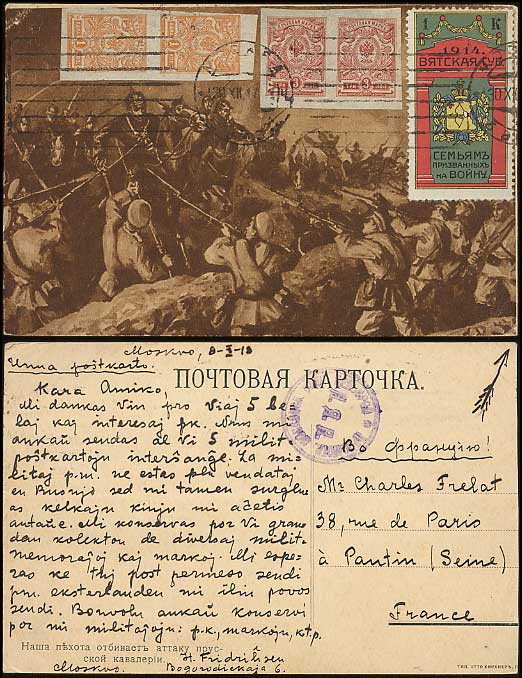 1 К
1914
ВЯТСКАЯ ГУБ
СЕМЬЯМЪ
ПРИЗВАННЫХЪ
НА ВОЙНУ.
1
1
3
3
Moskvo,
Unua poŝtkarto.
ПОЧТОВАЯ КАРТОЧКА.
Kara Amiko,
Mi dankas Vin pro Viaj 5 be
laj kaj interesaj pk. Nun mi
ankaŭ sendas al Vi 5 milit-
poŝtkartojn interŝanĝe. La mi-
litaj p.m. ne estas plu vendataj
en Rusujo sed mi tamen
as kelkajn kiujn mi aĉetis
antaŭe. Mi konservas por Vi gran
dan kolekton de diversaj milit-
memoraĵoj kaj markoj. Mi espe-
ras ke tuj post permeso sendi
p.m. eksterlanden mi ilin povos
sendi. Bonvolu ankaŭ konservi
por mi militaĵojn: p.k., markojn, k.t.p.
Во Францию!
Mr Charles Frelat
38, rue de Paris
à Pantin (Seine)
France
Наша пѣхота отбиваетъ аттаку прус-
ской кавалеріи.
H. Fridrihsen
Moskvo. Bogorodickaja 6.